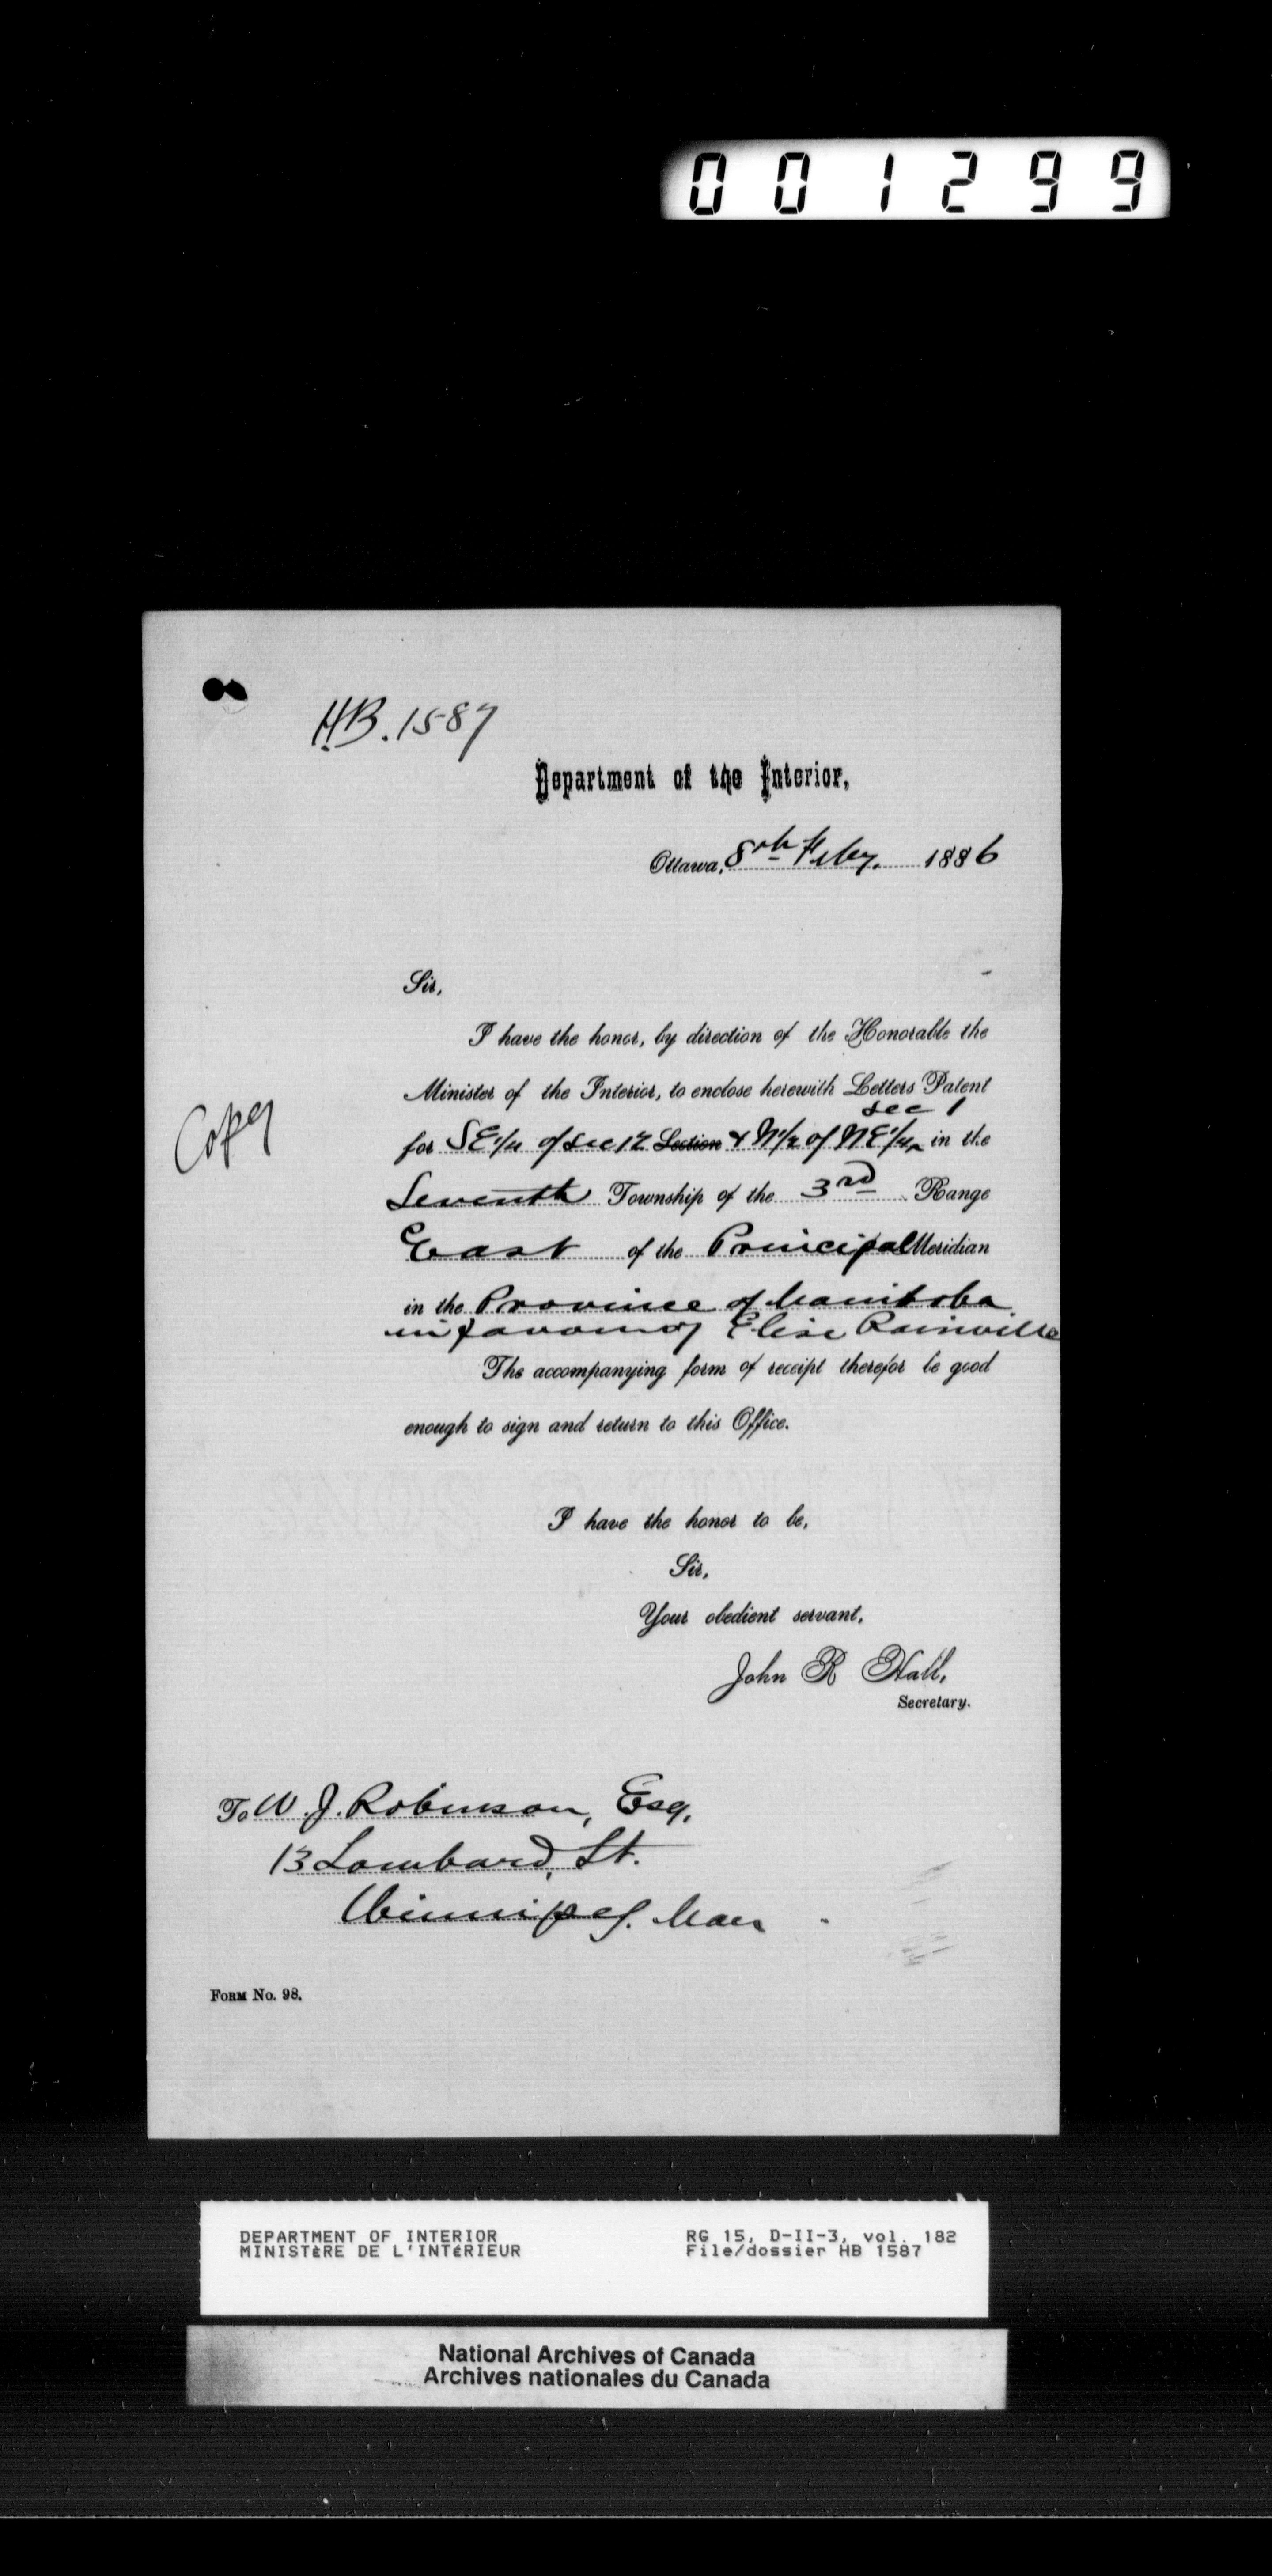 001299
H.B. 1587
Department of the Interior,
Ottawa, 8th Feby. 1886
Sir,
I have the honor, by direction of the Honorable the
Minister of the Interior, to enclose herewith Letters Patent
sec 1
for SE 1/4 of sec 12 Section & N 1/2 of NE 1/4 in the
Seventh Township of the 3rd Range
East of the Principal Meridian
in the Province of Manitoba
in favour of Elise Rainville
Copy
The accompanying form of receipt therefor be good
enough to sign and return to this Office.
I have the honor to be,
Sir,
Your obedient servant,
John R Hall,
Secretary.
To W. J. Robinson, Esq,
13 Lombard, St.
Winnipeg. Man
FORM No. 98.
DEPARTMENT OF INTERIOR RG 15, D-II-3, vol. 182
MINISTÈRE DE L'INTÉRIEUR File/dossier HB 1587
National Archives of Canada
Archives nationales du Canada